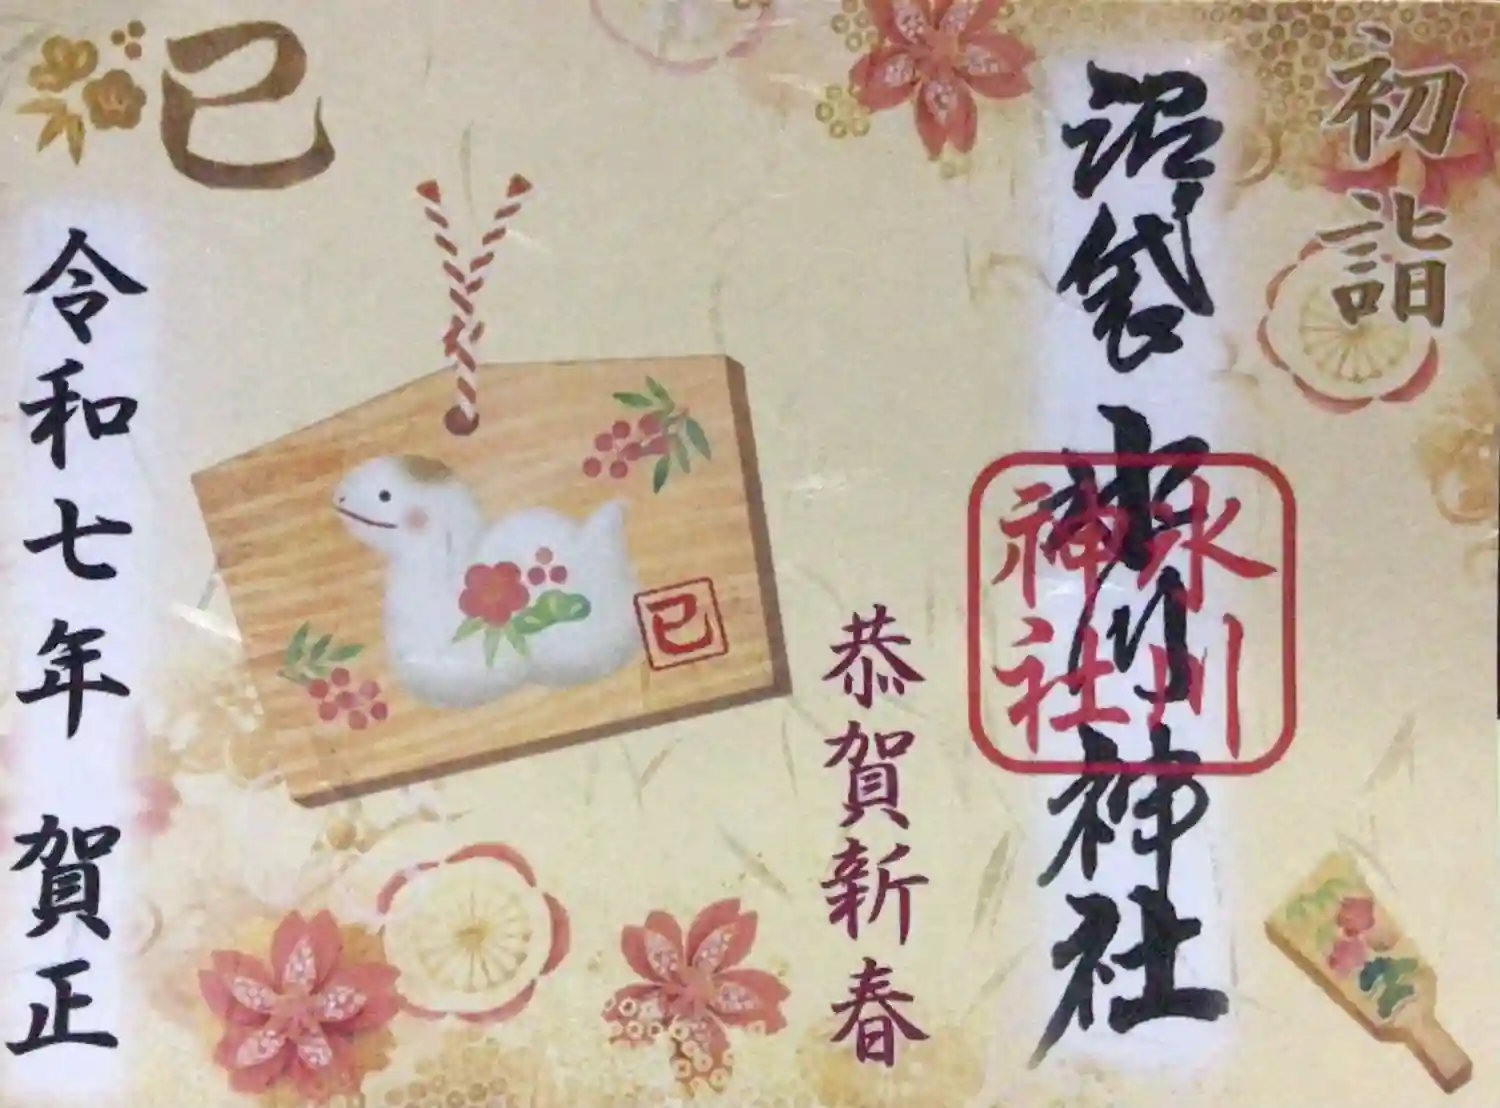 初詣
沼袋 氷川神社
氷川
神社
恭賀新春
巳
巳
令和七年 賀正